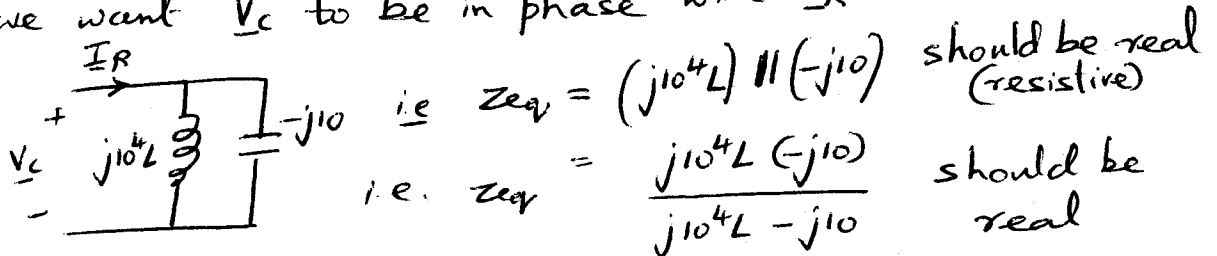 we want V_c to be in phase
I_R
+
V_c j10⁴L -j10
-
i.e Zeq = (j10⁴L) || (-j10) should be real
(resistive)
i.e. Zeq = j10⁴L (-j10) should be
j10⁴L - j10 real